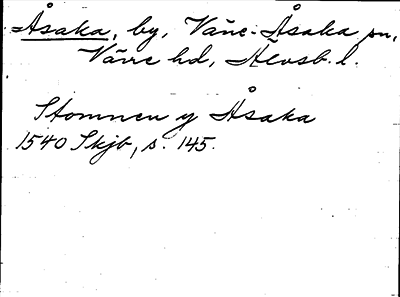 Åsaka, by, Väne-Åsaka sn,
Väne hd, Älvsb. l.
Stomnen y Åsaka
1540 Skjb, s. 145.